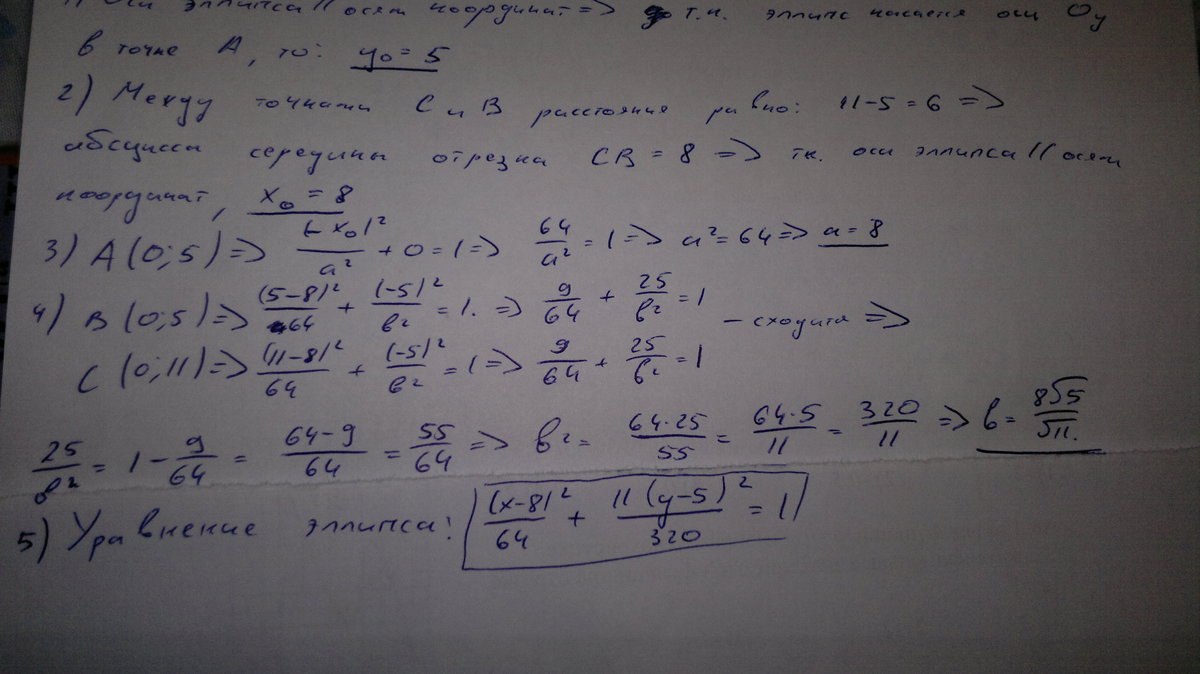 Оси эллипса || осям координат => т.к. эллипс касается оси Oy
в точке A, то: y₀ = 5
2) Между точками C и B расстояния равно: 11-5 = 6 =>
абсцисса середины отрезка CB = 8 => т.к. оси эллипса || осям
координат, x₀ = 8
3) A(0;5) => (-x₀)²/a² + 0 = 1 => 64/a² = 1 => a² = 64 => a = 8
4) B(0;5) => (5-8)²/64 + (-5)²/b² = 1. => 9/64 + 25/b² = 1
- сходится =>
C(0;11) => (11-8)²/64 + (-5)²/b² = 1 => 9/64 + 25/b² = 1
25/b² = 1 - 9/64 = (64-9)/64 = 55/64 => b² = (64·25)/55 = (64·5)/11 = 320/11 => b = 8√5/√11.
5) Уравнение эллипса: (x-8)²/64 + 11(y-5)²/320 = 1